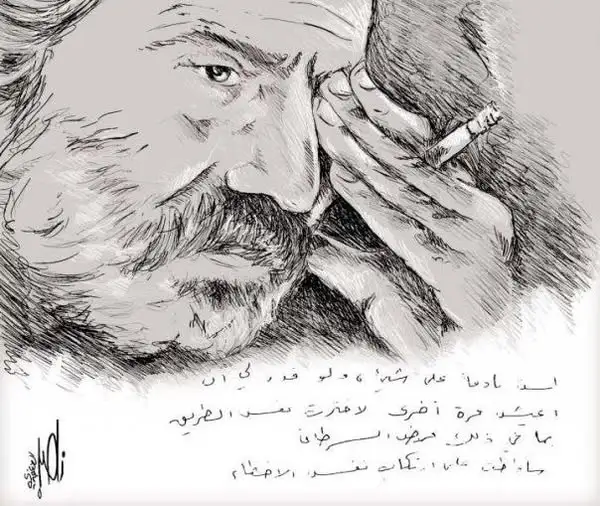 لست نادماً على شيء، ولو قدر لي أن
أعيش مرة أخرى لاخترت نفس الطريق
بما في ذلك مرض السرطان
سأواظب على ارتكاب نفس الأخطاء